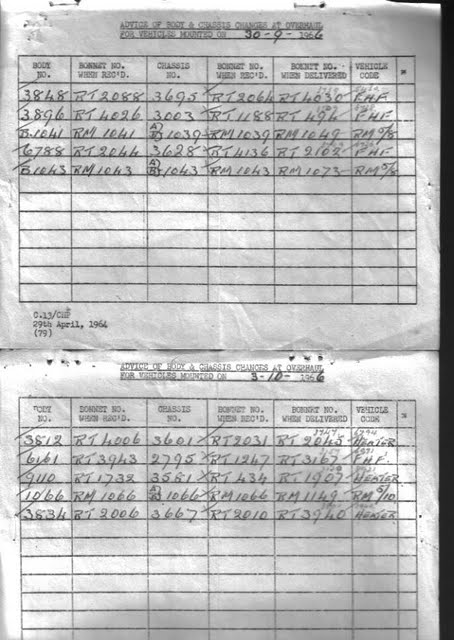 ADVICE OF BODY & CHASSIS CHANGES AT OVERHAUL
FOR VEHICLES MOUNTED ON 30-9- 1966
BODY NO. BONNET NO. WHEN REC'D. CHASSIS NO. BONNET NO. WHEN REC'D. BONNET NO. WHEN DELIVERED VEHICLE CODE
3848 RT 2088 3695 RT 2064 RT 4030 FHF
3896 RT 4026 3003 RT 1188 RT 494 FHF
B1041 RM 1041 A/B 1039 RM 1039 RM 1049 RM 5/8
6788 RT 2044 3628 RT 4136 RT 2102 FHF
B1043 RM 1043 A/B 1043 RM 1043 RM 1073 RM 5/8
C.13/CHF
29th April, 1964
(79)
ADVICE OF BODY & CHASSIS CHANGES AT OVERHAUL
FOR VEHICLES MOUNTED ON 3-10- 1966
BODY NO. BONNET NO. WHEN REC'D. CHASSIS NO. BONNET NO. WHEN REC'D. BONNET NO. WHEN DELIVERED VEHICLE CODE
3812 RT 4006 3601 RT 2031 RT 2045 HEATER
6161 RT 3943 2795 RT 1247 RT 3167 FHF
9110 RT 1732 3581 RT 434 RT 1907 HEATER
1066 RM 1066 A/B 1066 RM 1066 RM 1149 RM 5/10
3834 RT 2006 3667 RT 2010 RT 3940 HEATER